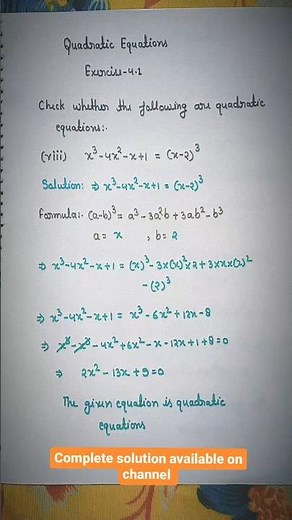 Quadratic Equations
Exercise-4.1
Check whether the following are quadratic
equations:-
(viii) x³-4x²-x+1 = (x-2)³
Solution: ⇒ x³-4x²-x+1 = (x-2)³
Formula:- (a-b)³ = a³-3a²b+3ab²-b³
a = x , b = 2
⇒ x³-4x²-x+1 = (x)³-3×(x)²×2+3×x×(2)²
-(2)³
⇒ x³-4x²-x+1 = x³-6x²+12x-8
⇒ x³-x³-4x²+6x²-x-12x+1+8=0
⇒ 2x²-13x+9=0
The given equation is quadratic
equations
Complete solution available on
channel